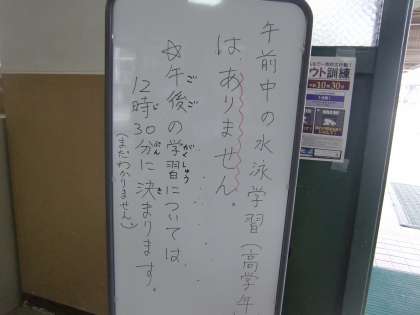 午前中の水泳学習(高学年
は、ありません。
☆午後の学習については、
12時30分に決まります。
(まだわかりません。)
ウト訓練
10月30日